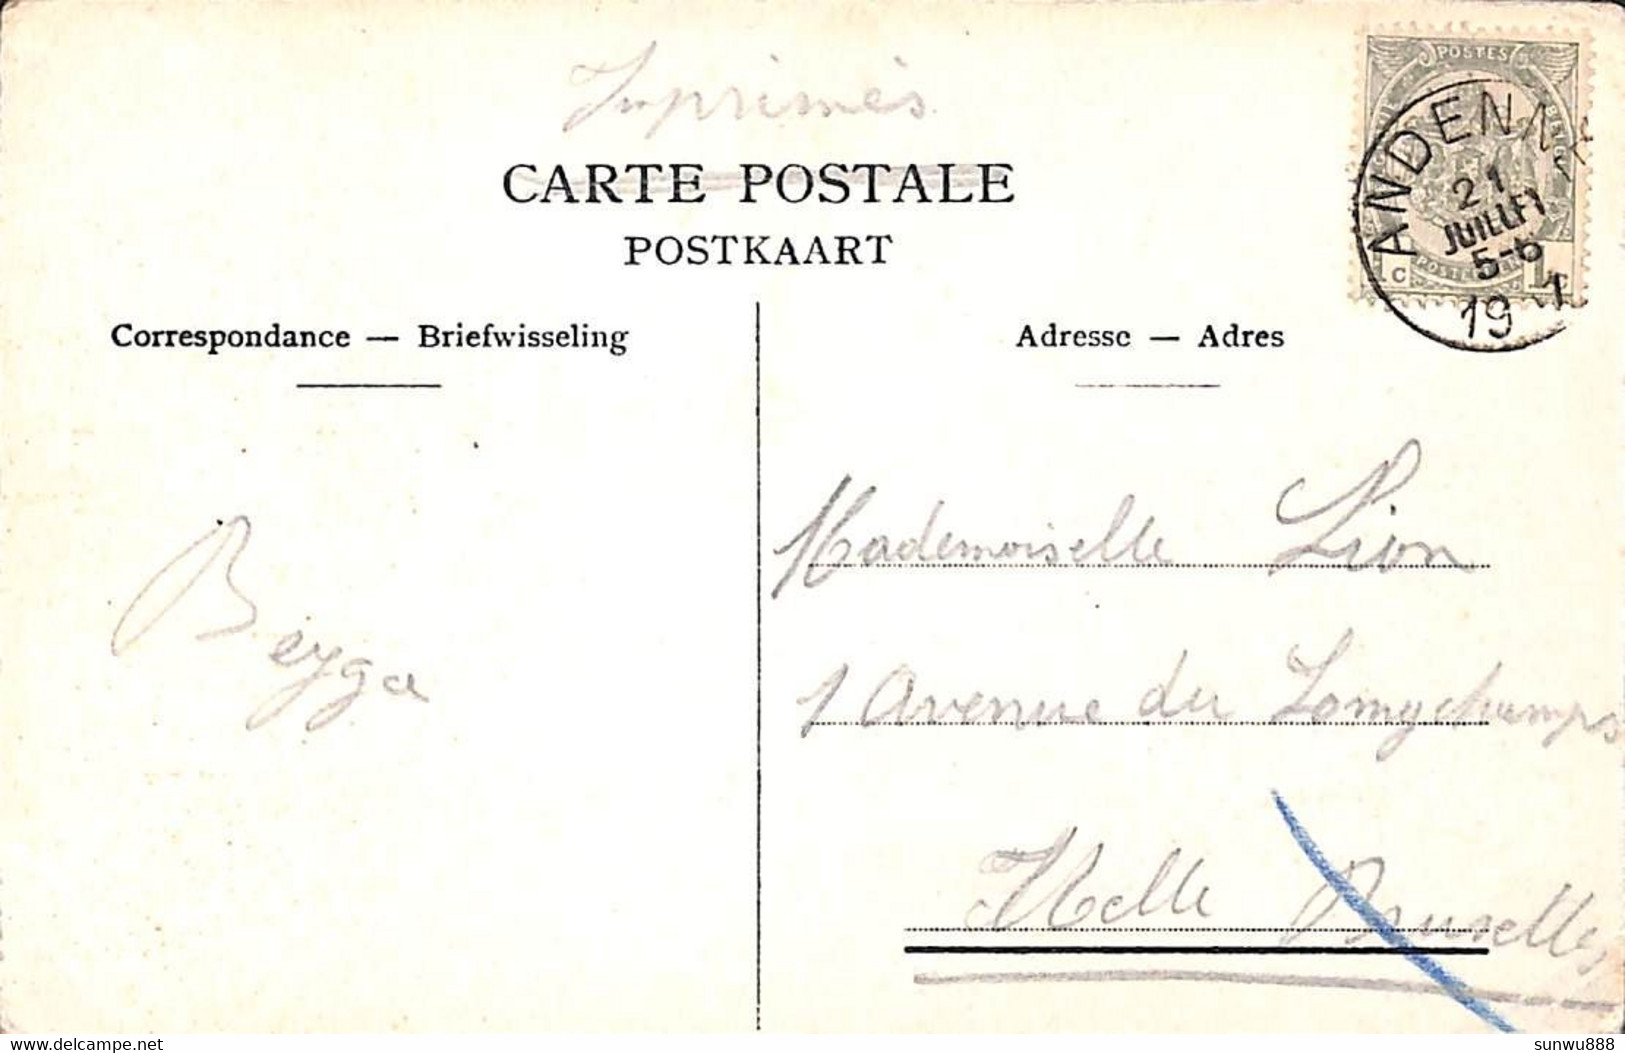 Imprimés
CARTE POSTALE
POSTKAART
POSTES
ANDENNE
21
JUILLET
5-6
19
C
1
Correspondance — Briefwisseling
Adresse — Adres
Mademoiselle Lion
1 Avenue du Longchamps
Bruxelles
delcampe.net
sunwu888